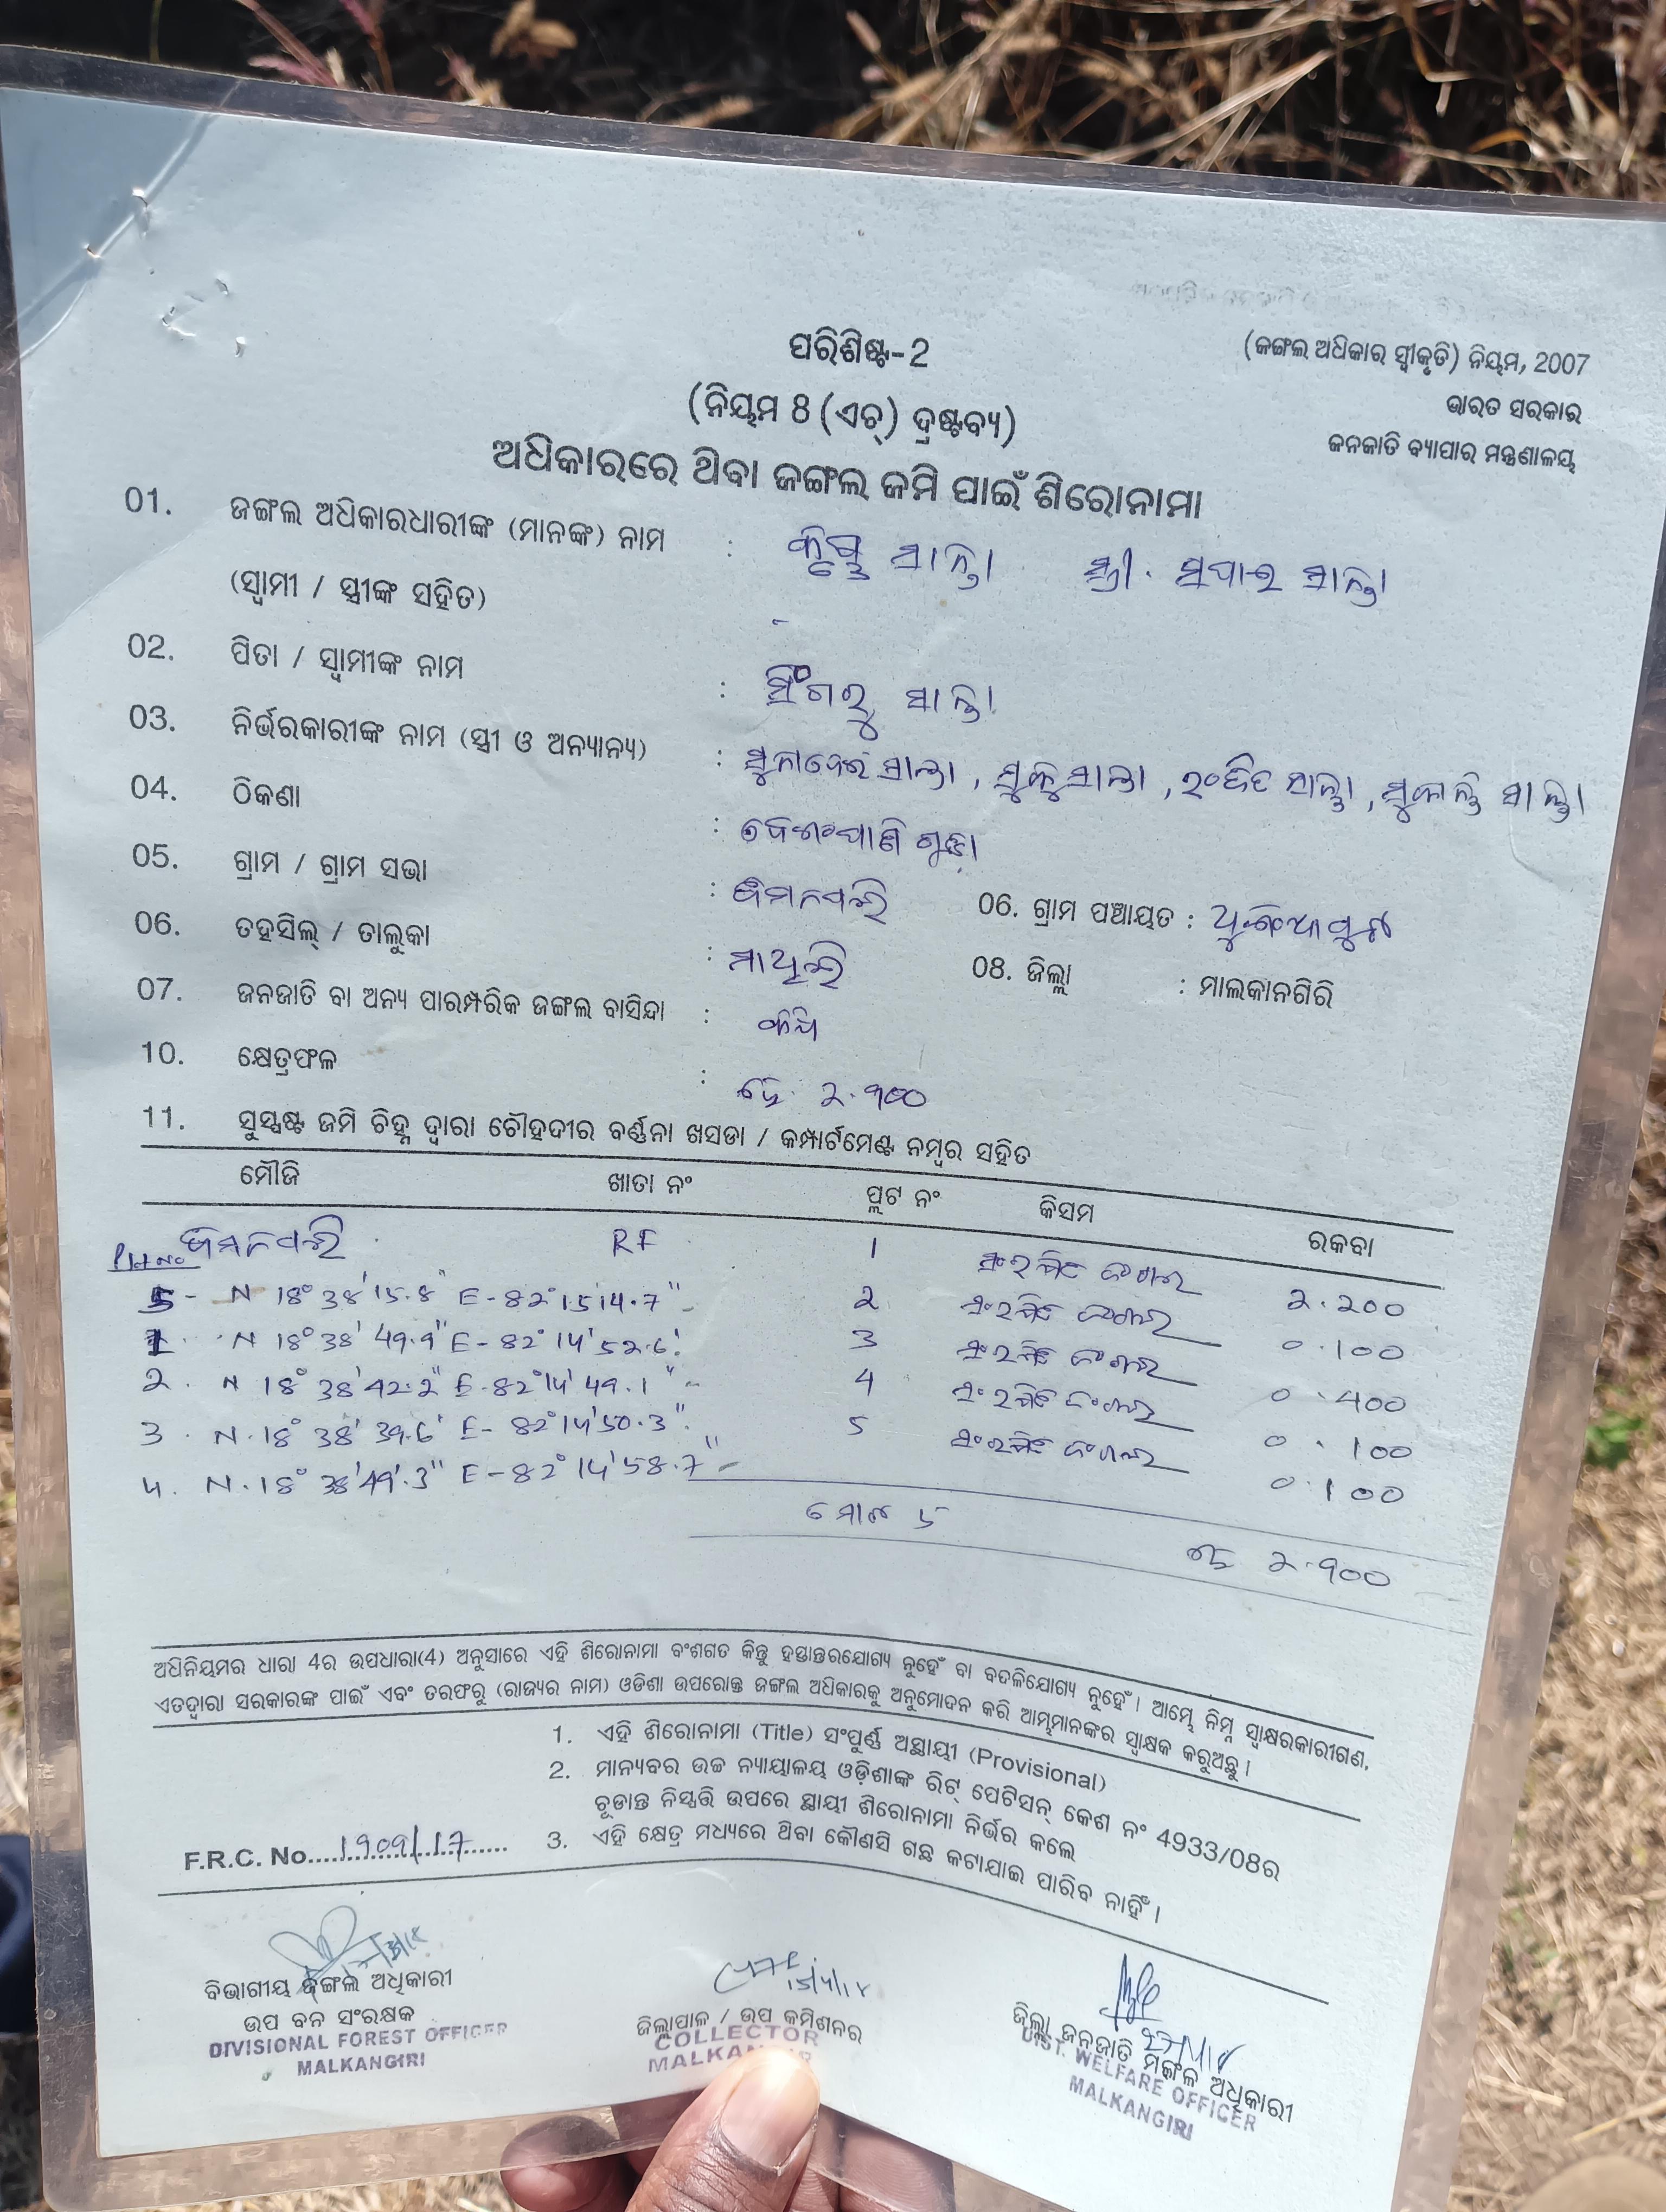 ପରିଶିଷ୍ଟ-2
(ଜଙ୍ଗଲ ଅଧିକାର ସ୍ୱୀକୃତି) ନିୟମ, 2007
(ନିୟମ ୫ (ଏଚ୍) ଦ୍ରଷ୍ଟବ୍ୟ)
ଭାରତ ସରକାର
ଜନଜାତି ବ୍ୟାପାର ମନ୍ତ୍ରଣାଳୟ
ଅଧିକାରରେ ଥିବା ଜଙ୍ଗଲ ଜମି ପାଇଁ ଶିରୋନାମା
01. ଜଙ୍ଗଲ ଅଧିକାରଧାରୀଙ୍କ (ମାନଙ୍କ) ନାମ : ସାନ୍ତା ସ୍ତ୍ରୀ. ସାନ୍ତା
(ସ୍ୱାମୀ / ସ୍ତ୍ରୀଙ୍କ ସହିତ)
02. ପିତା / ସ୍ୱାମୀଙ୍କ ନାମ : ସିଂଗରୁ ସାନ୍ତା
03. ନିର୍ଭରକାରୀଙ୍କ ନାମ (ସ୍ତ୍ରୀ ଓ ଅନ୍ୟାନ୍ୟ) : ସାନ୍ତା, ସାନ୍ତା, ସାନ୍ତା, ସାନ୍ତା
04. ଠିକଣା :
05. ଗ୍ରାମ / ଗ୍ରାମ ସଭା : 06. ଗ୍ରାମ ପଞ୍ଚାୟତ :
06. ତହସିଲ୍ / ତାଲୁକା : ମାଥିଲି 08. ଜିଲ୍ଲା : ମାଲକାନଗିରି
07. ଜନଜାତି ବା ଅନ୍ୟ ପାରମ୍ପରିକ ଜଙ୍ଗଲ ବାସିନ୍ଦା :
10. କ୍ଷେତ୍ରଫଳ : ହେ. ୨.୯୦୦
11. ସୁସ୍ପଷ୍ଟ ଜମି ଚିହ୍ନ ଦ୍ୱାରା ଚୌହଦୀର ବର୍ଣ୍ଣନା ଖସଡା / କମ୍ପାର୍ଟମେଣ୍ଟ ନମ୍ବର ସହିତ
ମୌଜି ଖାତା ନଂ ପ୍ଲଟ ନଂ କିସମ ରକବା
Plot No RF 1 ସଂରକ୍ଷିତ ଜଂଗଲ 2.200
5 - N 18° 38' 15.8" E - 82° 15' 14.7" 2 ସଂରକ୍ଷିତ ଜଂଗଲ 0.100
1. N 18° 38' 49.9" E - 82° 14' 52.6" 3 ସଂରକ୍ଷିତ ଜଂଗଲ 0.400
2. N 18° 38' 42.2" E - 82° 14' 49.1" 4 ସଂରକ୍ଷିତ ଜଂଗଲ 0.100
3. N. 18° 38' 39.6' E - 82° 14' 50.3" 5 ସଂରକ୍ଷିତ ଜଂଗଲ 0.100
4. N. 18° 38' 49'.3" E - 82° 14' 58.7"
ମୋଟ ୫ ହେ ୨.୯୦୦
ଅଧିନିୟମର ଧାରା 4ର ଉପଧାରା(4) ଅନୁସାରେ ଏହି ଶିରୋନାମା ବଂଶଗତ କିନ୍ତୁ ହସ୍ତାନ୍ତରଯୋଗ୍ୟ ନୁହେଁ ବା ବଦଳିଯୋଗ୍ୟ ନୁହେଁ। ଆମ୍ଭେ ନିମ୍ନ ସ୍ୱାକ୍ଷରକାରୀଗଣ,
ଏତଦ୍ୱାରା ସରକାରଙ୍କ ପାଇଁ ଏବଂ ତରଫରୁ (ରାଜ୍ୟର ନାମ) ଓଡିଶା ଉପରୋକ୍ତ ଜଙ୍ଗଲ ଅଧିକାରକୁ ଅନୁମୋଦନ କରି ଆମ୍ଭମାନଙ୍କର ସ୍ୱାକ୍ଷକ କରୁଅଛୁ।
1. ଏହି ଶିରୋନାମା (Title) ସଂପୂର୍ଣ୍ଣ ଅସ୍ଥାୟୀ (Provisional)
2. ମାନ୍ୟବର ଉଚ୍ଚ ନ୍ୟାୟାଳୟ ଓଡ଼ିଶାଙ୍କ ରିଟ୍ ପେଟିସନ୍ କେଶ ନଂ 4933/08ର
ଚୂଡାନ୍ତ ନିସ୍ପତ୍ତି ଉପରେ ସ୍ଥାୟୀ ଶିରୋନାମା ନିର୍ଭର କଲେ
3. ଏହି କ୍ଷେତ୍ର ମଧ୍ୟରେ ଥିବା କୌଣସି ଗଛ କଟାଯାଇ ପାରିବ ନାହିଁ।
F.R.C. No....1909/17......
ବିଭାଗୀୟ ଜଙ୍ଗଲ ଅଧିକାରୀ
ଉପ ବନ ସଂରକ୍ଷକ
DIVISIONAL FOREST OFFICER
MALKANGIRI
ଜିଲ୍ଲାପାଳ / ଉପ କମିଶନର
COLLECTOR
ଜିଲ୍ଲା ଜନଜାତି ମଙ୍ଗଳ ଅଧିକାରୀ
DIST. WELFARE OFFICER
MALKANGIRI